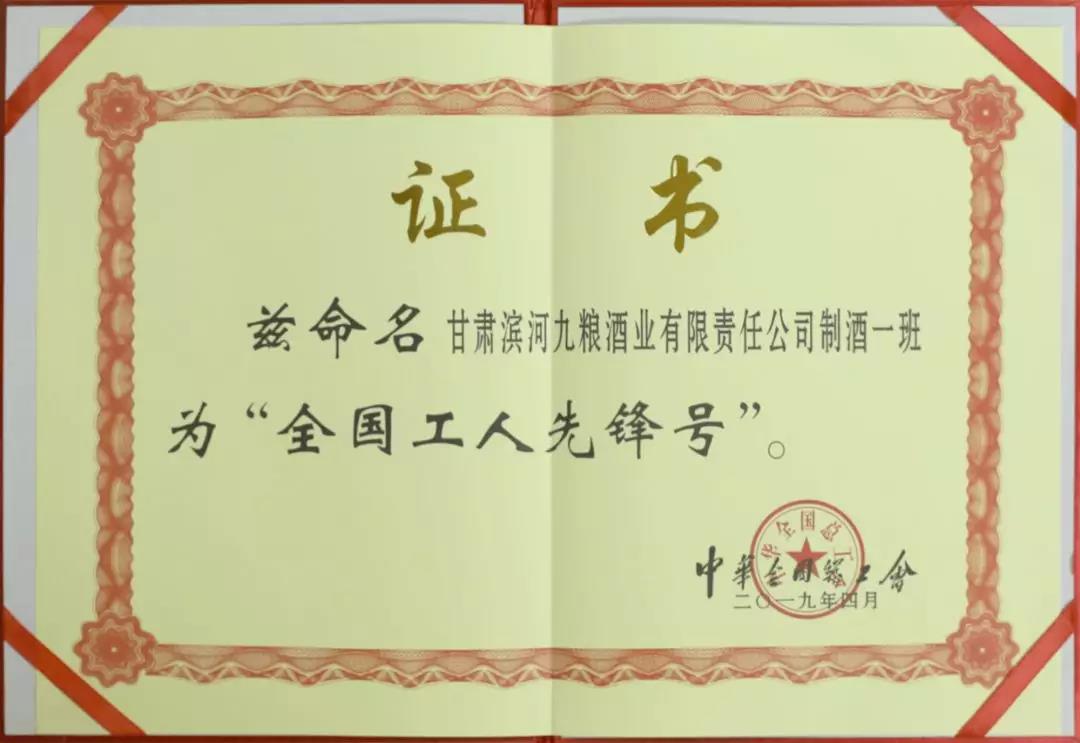 证书
兹命名甘肃滨河九粮酒业有限责任公司制酒一班
为“全国工人先锋号”。
中华全国总工会
中華全國總工會
二〇一九年四月